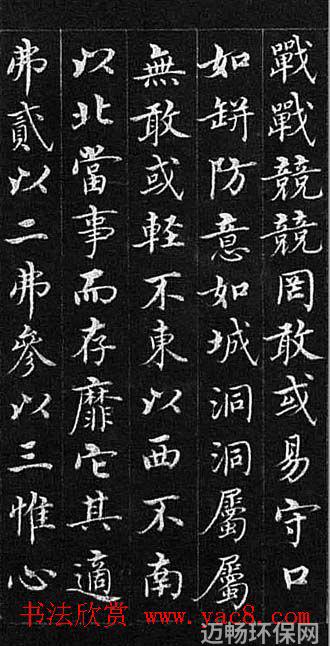 戰戰競競罔敢或易守口
如缾防意如城洞洞屬屬
無敢或輕不東以西不南
以北當事而存靡它其適
弗貳以二弗參以三惟心
书法欣赏 www.yac8.com
迈畅环保网